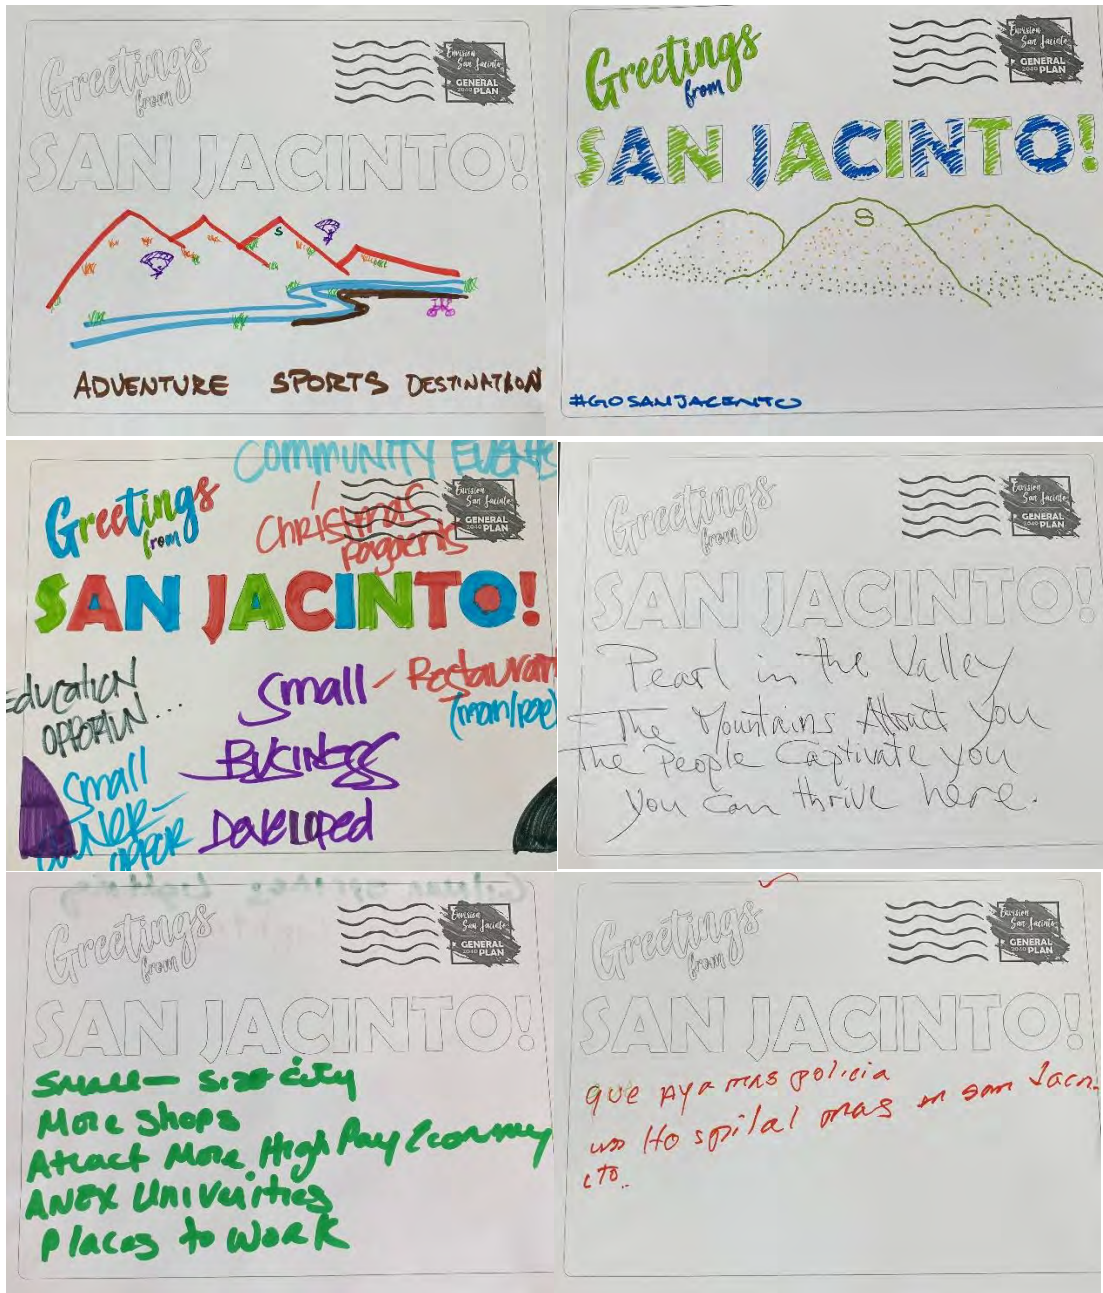 Greetings
from
Envision
San Jacinto
GENERAL
2040 PLAN
SAN JACINTO!
S
ADVENTURE SPORTS DESTINATION
Greetings
from
Envision
San Jacinto
GENERAL
2040 PLAN
SAN JACINTO!
S
#GOSANJACENTO
COMMUNITY EVENTS
Greetings
from
Christmas
pagents
Envision
San Jacinto
GENERAL
2040 PLAN
SAN JACINTO!
Education
OPPORTUN...
Small - Restauran
(mom/pop)
BUSINESS
Developed
Small
OWNER-
OPPOR
Greetings
from
Envision
San Jacinto
GENERAL
2040 PLAN
SAN JACINTO!
Pearl in the Valley
The Mountains Attract You
The People Captivate you
you can thrive here.
Greetings
from
Envision
San Jacinto
GENERAL
2040 PLAN
SAN JACINTO!
Small - size city
More shops
Atract More High Pay Economey
ANEX Univerities
Places to work
Greetings
from
Envision
San Jacinto
GENERAL
2040 PLAN
SAN JACINTO!
que Aya mas policia
un Hospital mas en san Jacin-
cto..